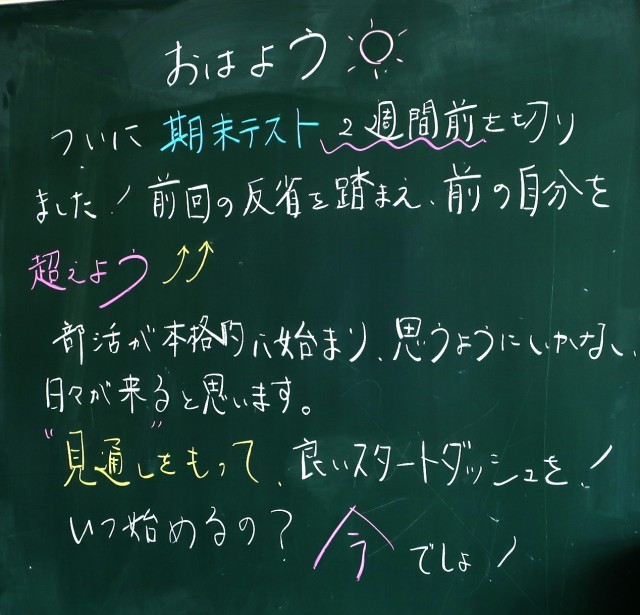 おはよう
ついに期末テスト2週間前を切り
ました!前回の反省を踏まえ、前の自分を
超えよう
部活が本格的に始まり、思うようにいかない
日々が来ると思います。
"見通し"をもって、良いスタートダッシュを!
いつ始めるの?今でしょ!